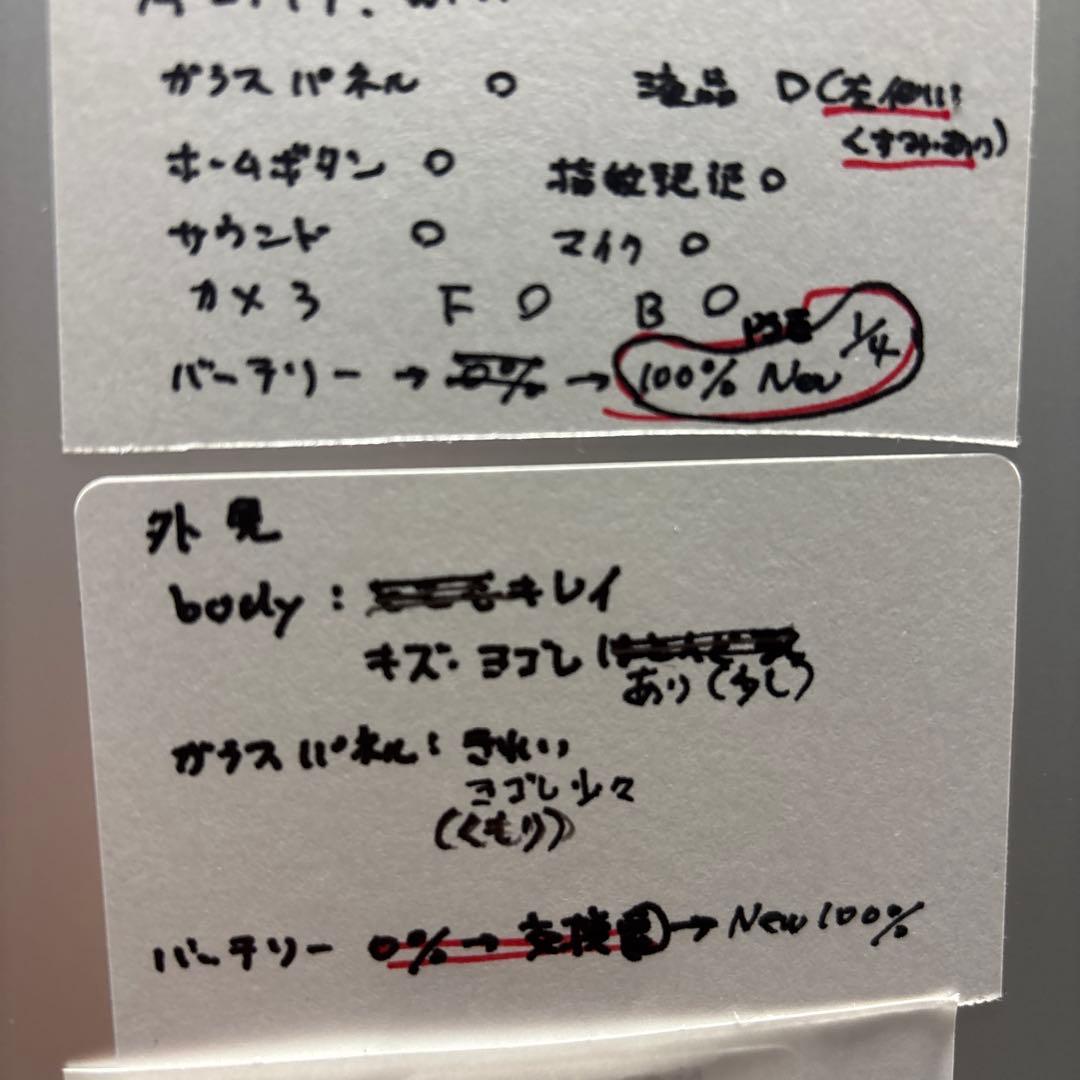 ガラスパネル ○ 液晶 ○(左側に
くすみあり)
ホームボタン ○ 指紋認証○
サウンド ○ マイク ○
カメラ F ○ B ○
PSE 1/4
バーテリー → 0% → 100% New
外見
body : キレイ
キズ・ヨゴレ
あり(少し)
ガラスパネル : きれい
ヨゴレ少々
(くもり)
バーテリー 0% → 交換 → New 100%